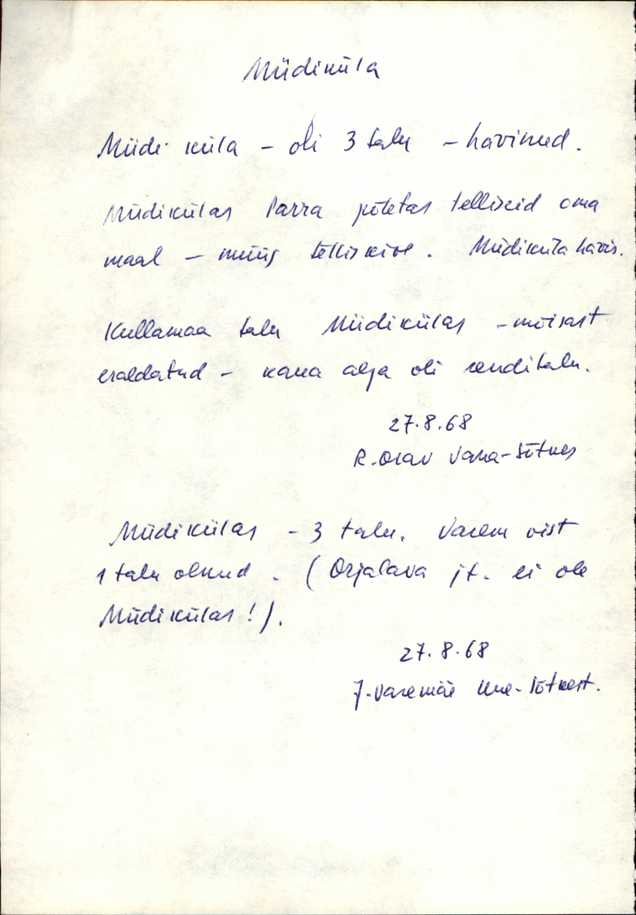 Müdiküla
Müdi küla - oli 3 talu - hävinud.
Müdikülas Parra põletas telliseid oma
maal - müüs telliskive. Müdiküla hävis.
Kullamaa talu Müdikülas - mõisast
eraldatud - kaua aega oli renditalu.
27.8.68
R. Orav Vana-Sõtkes
Müdikülas - 3 talu. Varem vist
1 talu olnud. (Orjalava jt. ei ole
Müdikülas!).
27.8.68
J. Varemäe Uue-Sõtkest.